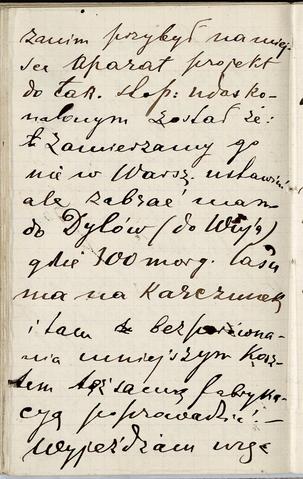 zanim przybył na miej-
sce aparat projekt
do tak. stop: udosko-
nalonym został że:
zamierzamy go
nie w Warsz. ustawić
ale zabrać mam
do Dylów (do Wuja)
gdzie 300 morg. lasu
ma na karczunek
i tam bezporówna-
nia mniejszym kosz-
tem tęż samą fabryka-
cyą poprowadzić –
Wyjeżdżam więc